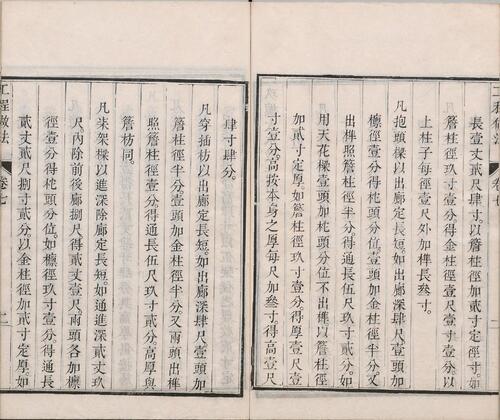 工程做法
長壹丈貳尺肆寸以簷柱徑定徑寸。如
簷柱徑玖寸壹分得金柱徑壹尺壹寸壹分以
上柱子每徑壹尺外加榫長叁寸。
凡抱頭樑以出廊定長短。如出廊深肆尺壹頭加
檁徑壹分得柁頭分位。壹頭加金柱徑半分。又
出榫照簷柱徑半分得通長伍尺玖寸貳分。如
用天花樑壹頭加柁頭分位不出榫以簷柱徑
加貳寸定厚。如簷柱徑玖寸壹分得厚壹尺壹
寸壹分。高按本身之厚每尺加叁寸得高壹尺
肆寸肆分。
凡穿插枋以出廊定長短。如出廊深肆尺壹頭加
簷柱徑半分壹頭加金柱徑半分又兩頭出榫
照簷柱徑壹分得通長伍尺玖寸貳分。高厚與
簷枋同。
凡柒架樑以進深除廊定長短。如通進深貳丈玖
尺內除前後廊捌尺得貳丈壹尺。兩頭各加檁
徑壹分得柁頭分位。如檁徑玖寸壹分得通長
貳丈貳尺捌寸貳分以金柱徑加貳寸定厚。如
工程做法 卷七 二